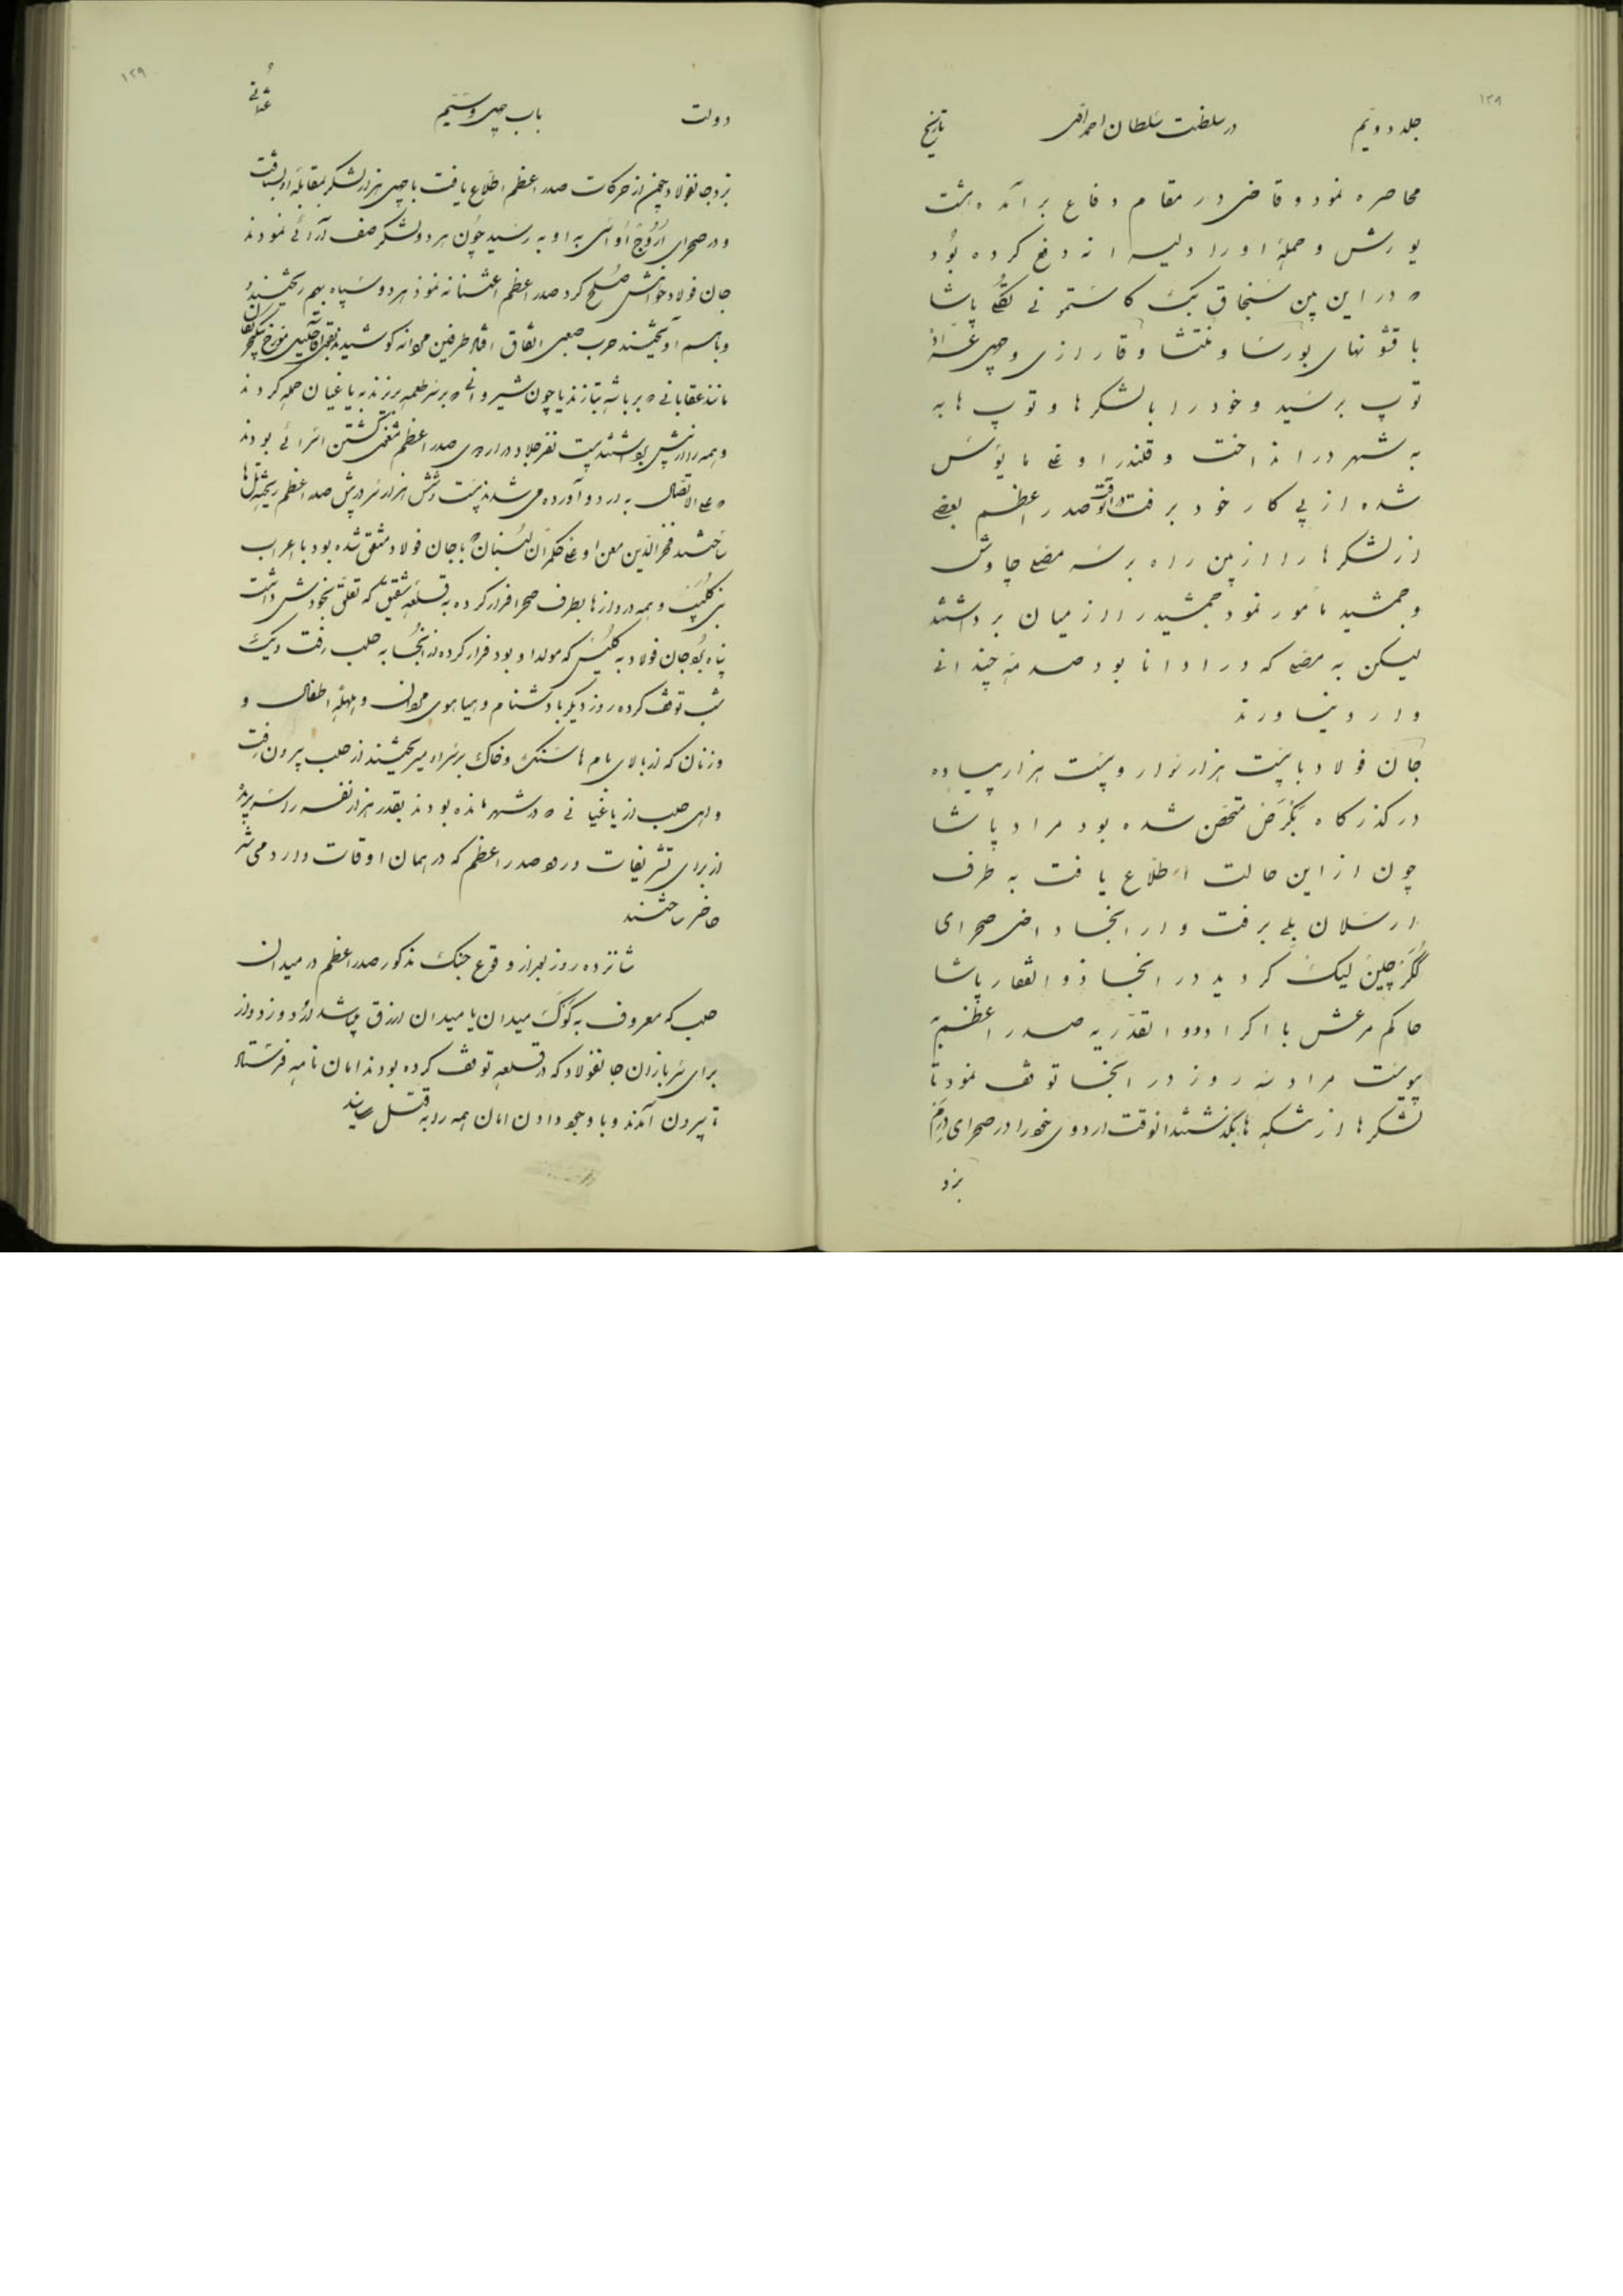 ۱۲۸
جلد دویم در سلطنت سلطان احمد اول تاریخ
محاصره نمود و قاضی در مقام دفاع برآمده هشت
یورش و حملهٔ او را دلیرانه دفع کرده بود
در این بین سنجاق بک کاستمونی پاشا
با قشونهای بورسا و منتشا و قارازی و چهل عرّاده
توپ برسید و خود را با لشکرها و توپ ها به
به شهر در انداخت و قلندر اوغلی مایوس
شده از پی کار خود برفت صدر اعظم بعضی
از لشکرها را از بین راه بر سر مصلی چاوش
و جمشید مأمور نمود جمشید را از میان برداشتند
لیکن به مصلی که در ادانا بود صدمهٔ چندانی
وارد نیاوردند
جان فولاد با بیست هزار سوار و بیست هزار پیاده
در گذرگاه بکرض متحصن شده بود مراد پاشا
چون از این حالت اطلاع یافت به طرف
ارسلان بلی برفت و از آنجا داخل صحرای
گگرچین لیک گردید در آنجا ذوالفقار پاشا
حاکم مرعش با اکراد ذوالقدریه به صدر اعظم
پیوست مراد سه روز در آنجا توقف نمود تا
لشکرها از تنگه ها بگذشتند آنوقت اردوی خود را در صحرای
بزد
۱۲۹
دولت باب چهل و سیّم عثمانی
بزد جانفولاد چون از حرکات صدر اعظم اطلاع یافت با چهل هزار لشکر بمقابلهٔ او بشتافت
و در صحرای اروج اواسی به او برسید چون هر دو لشکر صف آرائی نمودند
جان فولاد خواهش صلح کرد صدر اعظم اعتنا نه نمود هر دو سپاه بهم ریختند
و باهم آویختند حرب صعبی اتفاق افتاد طرفین مردانه کوشیدند
مانند عقابانی که بر باشه بتازند یا چون شیروانی که بر سر طعمه بریزند به یاغیان حمله کردند
و همه را از پیش برداشتند بیست نفر جلاد در اردوی صدر اعظم مشغول کشتن اسرائی بودند
که علی الاتصال به اردو آورده می شدند بیست و شش هزار سر در پیش صدر اعظم ریخته تلها
ساختند فخر الدین معن اوغلی حکمران لبنان که با جان فولاد متفق شده بود با اعراب
بنی کلیب و همه دروزها بطرف صحرا فرار کرده به قلعهٔ شقیق که تعلق بخودش داشت
پناه برد جان فولاد به کلیس که مولد او بود فرار کرده از آنجا به حلب رفت و یک
شب توقف کرده روز دیگر با دشنام و هیاهوی مردان و مهلهٔ اطفال و
و زنان که از بالای بام ها سنگ و خاک بر سر او میریختند از حلب بیرون رفت
و اهل حلب از یاغیانی که در شهر مانده بودند بقدر هزار نفر را سر بریده
از برای تشریفات ورود صدر اعظم که در همان اوقات وارد می شد
حاضر ساختند
شانزده روز بعد از وقوع جنگ مذکور صدر اعظم در میدان
حلب که معروف به گوک میدان یا میدان ازرق میباشد اردو زد و از
برای سربازان جانفولاد که در قلعه توقف کرده بودند امان نامه فرستاد
تا بیرون آمدند و با وجود دادن امان همه را به قتل رسانید